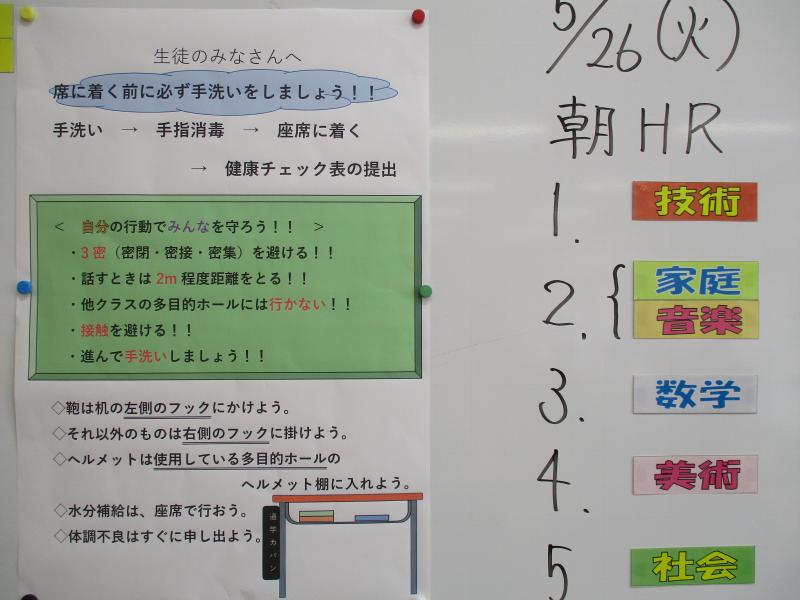 生徒のみなさんへ
席に着く前に必ず手洗いをしましょう！！
手洗い → 手指消毒 → 座席に着く
→ 健康チェック表の提出
＜ 自分の行動でみんなを守ろう！！ ＞
・3密（密閉・密接・密集）を避ける！！
・話すときは2m程度距離をとる！！
・他クラスの多目的ホールには行かない！！
・接触を避ける！！
・進んで手洗いしましょう！！
◇鞄は机の左側のフックにかけよう。
◇それ以外のものは右側のフックに掛けよう。
◇ヘルメットは使用している多目的ホールの
ヘルメット棚に入れよう。
◇水分補給は、座席で行おう。
◇体調不良はすぐに申し出よう。
通学カバン
5/26(火)
朝HR
1. 技術
2. { 家庭
音楽
3. 数学
4. 美術
5 社会